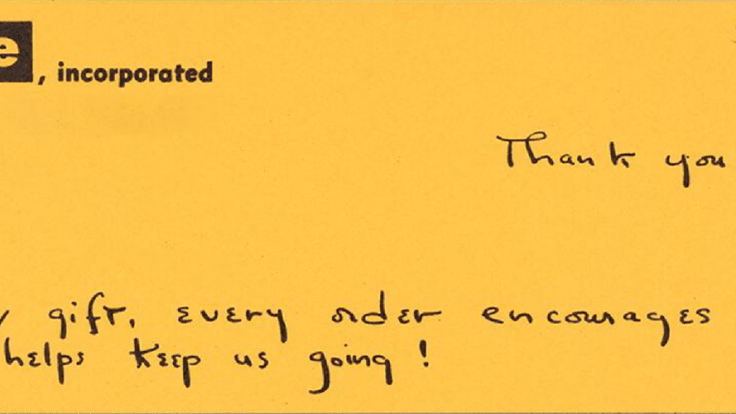 e, incorporated
Thank you
y gift, every order encourages
helps keep us going!